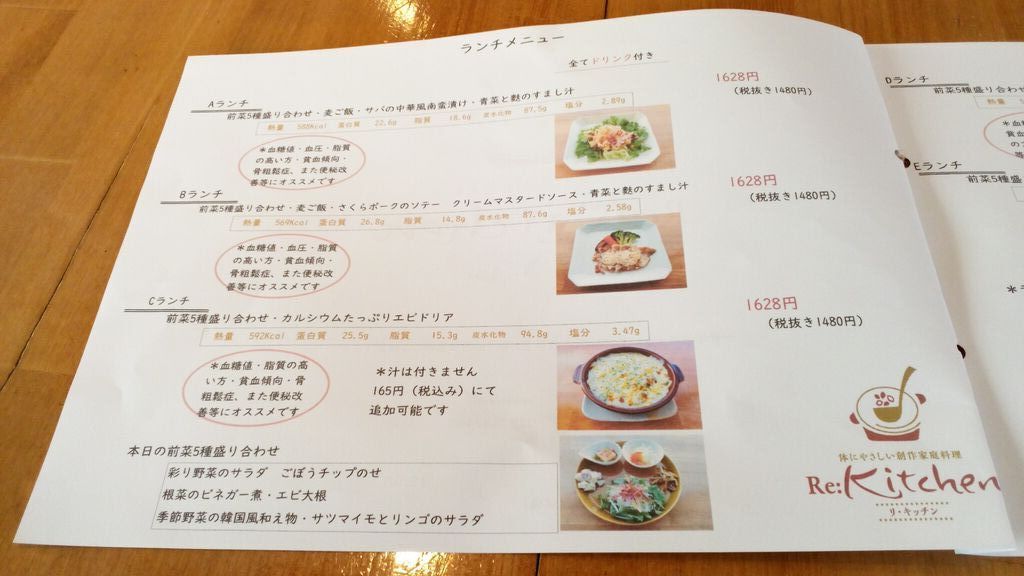 ランチメニュー
全てドリンク付き
Aランチ
1628円
(税抜き1480円)
前菜5種盛り合わせ・麦ご飯・サバの中華風南蛮漬け・青菜と麩のすまし汁
熱量 588Kcal 蛋白質 22.6g 脂質 18.6g 炭水化物 87.5g 塩分 2.89g
*血糖値・血圧・脂質
の高い方・貧血傾向・
骨粗鬆症、また便秘改
善等にオススメです
Bランチ
1628円
(税抜き1480円)
前菜5種盛り合わせ・麦ご飯・さくらポークのソテー クリームマスタードソース・青菜と麩のすまし汁
熱量 569Kcal 蛋白質 26.8g 脂質 14.8g 炭水化物 87.6g 塩分 2.58g
*血糖値・血圧・脂質
の高い方・貧血傾向・
骨粗鬆症、また便秘改
善等にオススメです
Cランチ
1628円
(税抜き1480円)
前菜5種盛り合わせ・カルシウムたっぷりエビドリア
熱量 592Kcal 蛋白質 25.5g 脂質 15.3g 炭水化物 94.8g 塩分 3.47g
*血糖値・脂質の高
い方・貧血傾向・骨
粗鬆症、また便秘改
善等にオススメです
*汁は付きません
165円(税込み)にて
追加可能です
本日の前菜5種盛り合わせ
彩り野菜のサラダ ごぼうチップのせ
根菜のビネガー煮・エビ大根
季節野菜の韓国風和え物・サツマイモとリンゴのサラダ
体にやさしい創作家庭料理
Re:Kitchen
リ・キッチン
Dランチ
前菜5種盛り合わ
熱量
Eランチ
前菜5種